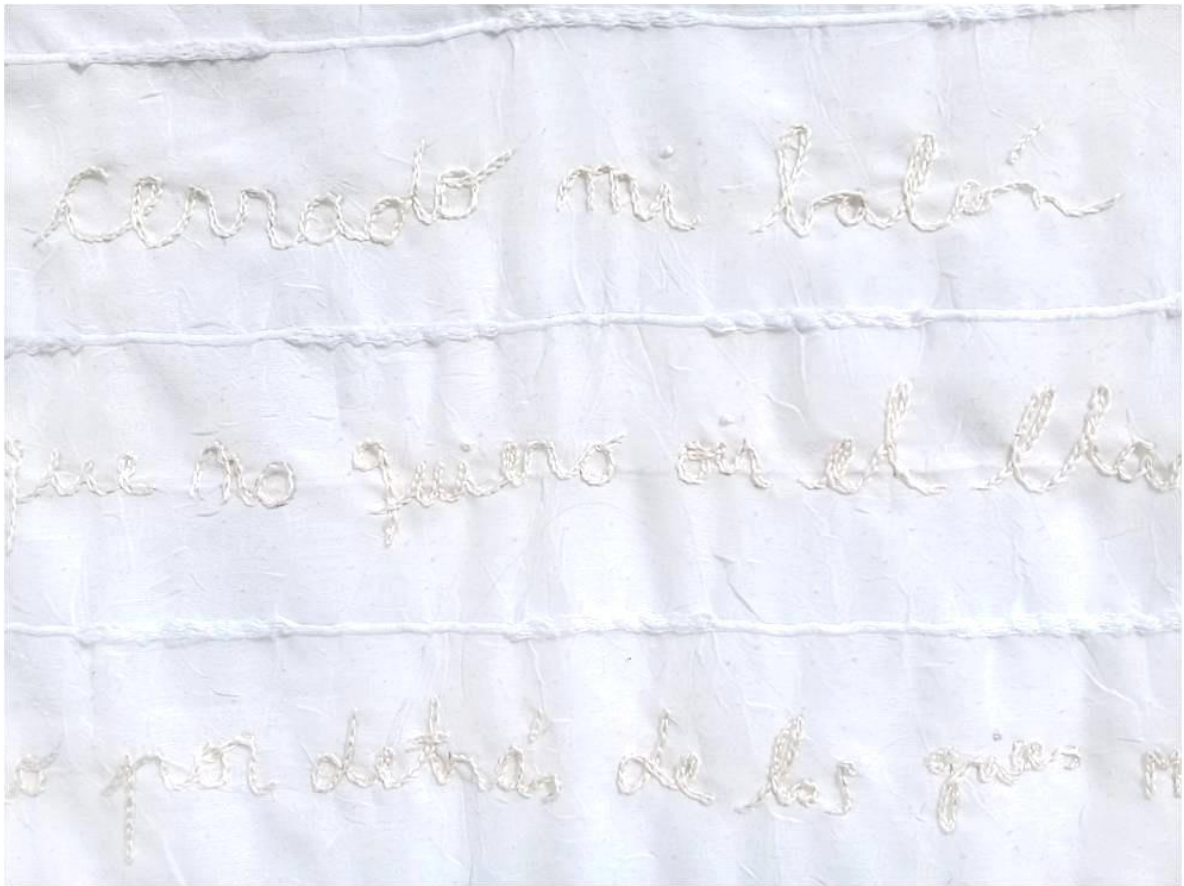 cerrado mi balcón
que no quiero oír el llan
o por detrás de los grises m